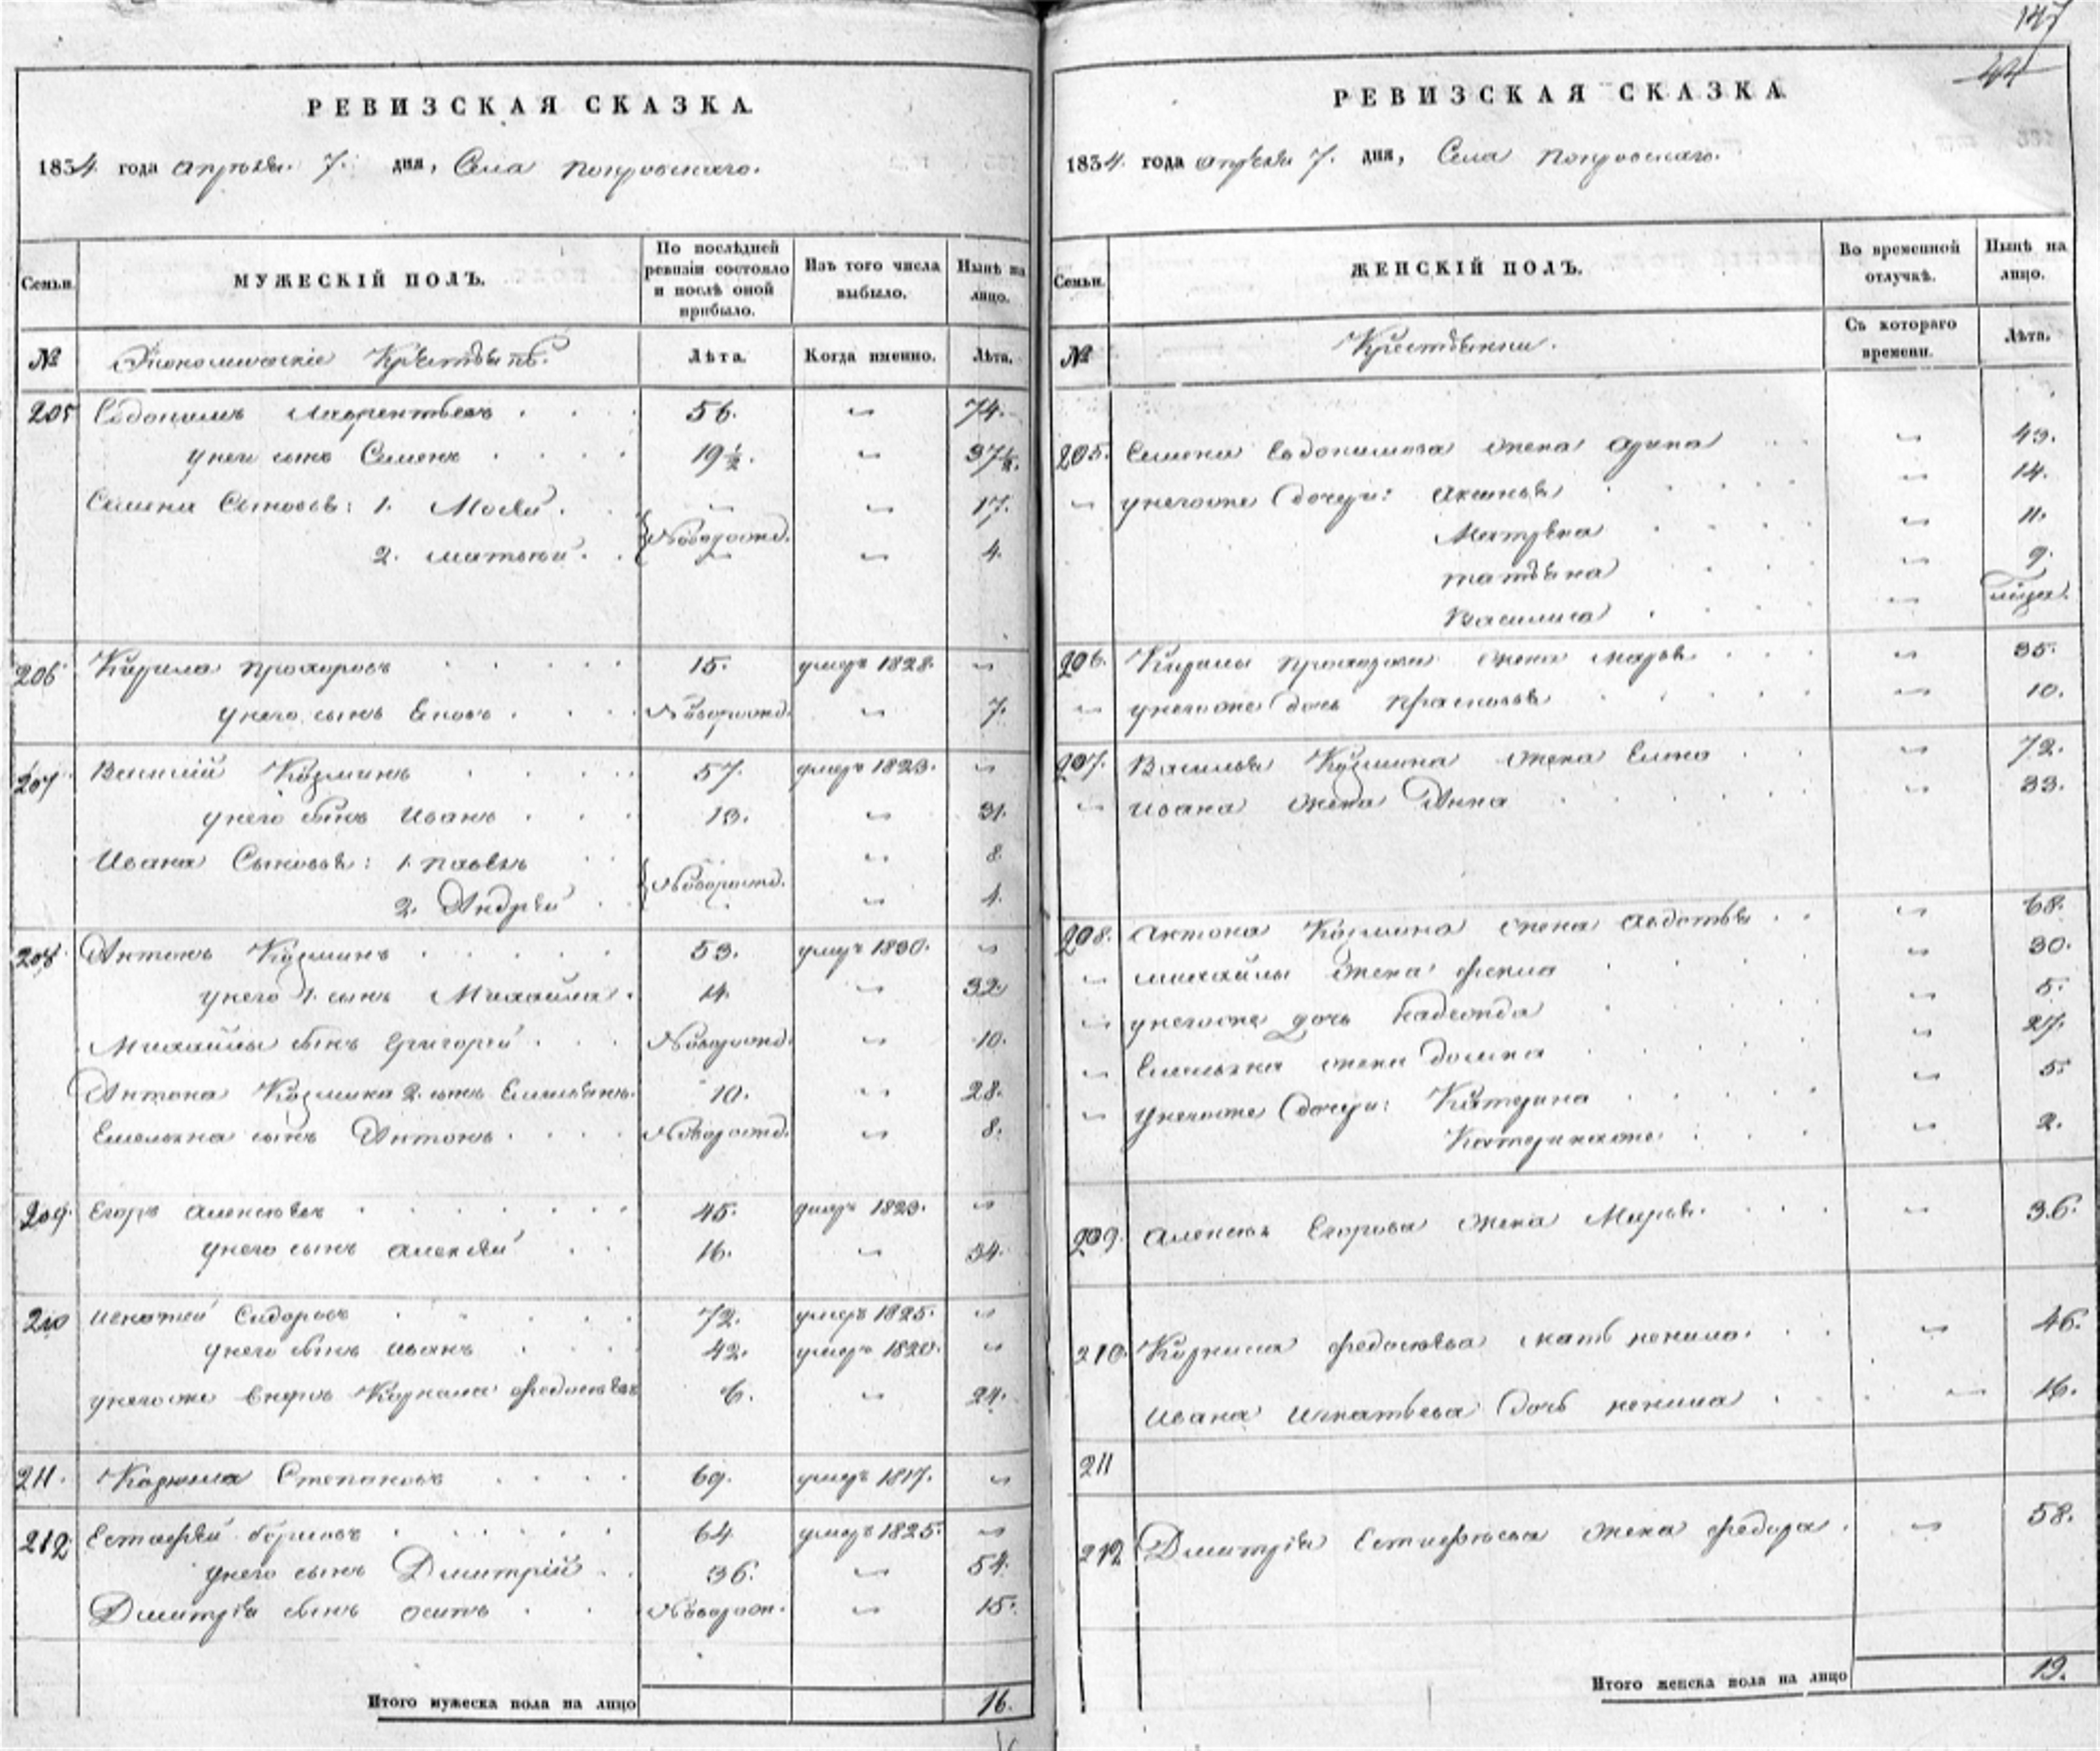 147
44
РЕВИЗСКАЯ СКАЗКА.
1834. года апрѣля. 7. дня, Села Покровскаго.
Семьи.
МУЖЕСКІЙ ПОЛЪ.
По послѣдней ревизіи состояло и послѣ оной прибыло.
Изъ того числа выбыло.
Нынѣ на лицо.
№ Экономическіе Крестьянѣ. Лѣта. Когда именно. Лѣта.
205 Евдокимъ Лаврентьевъ 56. " 74.
у него сынъ Семенъ 19½. " 37½.
Семена Сыновья: 1. Мосѣй. Новорожд. " 17.
2. Матвѣй. " 4.
206 Кирила Прохоровъ 15. умеръ 1828. "
у него сынъ Яковъ. Новорожд. " 7.
207 Василій Козминъ 57. умеръ 1823. "
у него сынъ Иванъ 13. " 31.
Ивана Сыновья: 1. Павелъ Новорожд. " 8
2. Андрѣй " 4.
208 Антонъ Козминъ 53. умеръ 1830. "
у него 1. сынъ Михайла. 14. " 32.
Михайлы сынъ Григорей Новорожд. " 10.
Антона Козмина 2. сынъ Емельянъ. 10. " 28.
Емельяна сынъ Антонъ Новорожд. " 8.
209. Егоръ Алексѣевъ 45. умеръ 1823. "
у него сынъ Алексѣй 16. " 34.
210 Игнатей Сидоровъ 72. умеръ 1825. "
у него сынъ Иванъ 42. умеръ 1820. "
у негоже Корнила Федосѣевъ 6. " 24.
211. Корнила Степановъ 69. умеръ 1817. "
212 Естафѣй Борисовъ 64 умеръ 1825. "
у него сынъ Дмитрій 36. " 54.
Дмитрія сынъ Осипъ Новорож. " 15.
Итого мужеска пола на лицо 16.
РЕВИЗСКАЯ СКАЗКА
1834. года апрѣля 7. дня, Села Покровскаго.
Семьи.
ЖЕНСКІЙ ПОЛЪ.
Во временной отлучкѣ.
Нынѣ на лицо.
№ Крестьянки. Съ котораго времени. Лѣта.
205. Семена Евдокимова жена Арина " 43.
" у негоже дочери: Аксинья " 14.
Матрена " 11.
Татьяна " 9.
Василиса "
206. Кирилы Прохорова жена Марья " 35.
" у негоже дочь Прасковья " 10.
207. Василья Козмина жена Елена " 72.
" Ивана жена Анна " 33.
208. Антона Козмина жена Авдотья " 68.
" Михайлы жена Фекла " 30.
" у негоже дочь Надежда " 5.
" Емельяна жена Домна " 27.
" у негоже дочери: Катерина " 5.
Катеринаже " 2.
209. Алексѣя Егорова жена Марья. " 36.
210. Корнила Федосѣева мать 46.
Ивана Игнатьева дочь 16.
211
212 Дмитрія Естафьева жена Федора. " 58.
Итого женска пола на лицо 19.